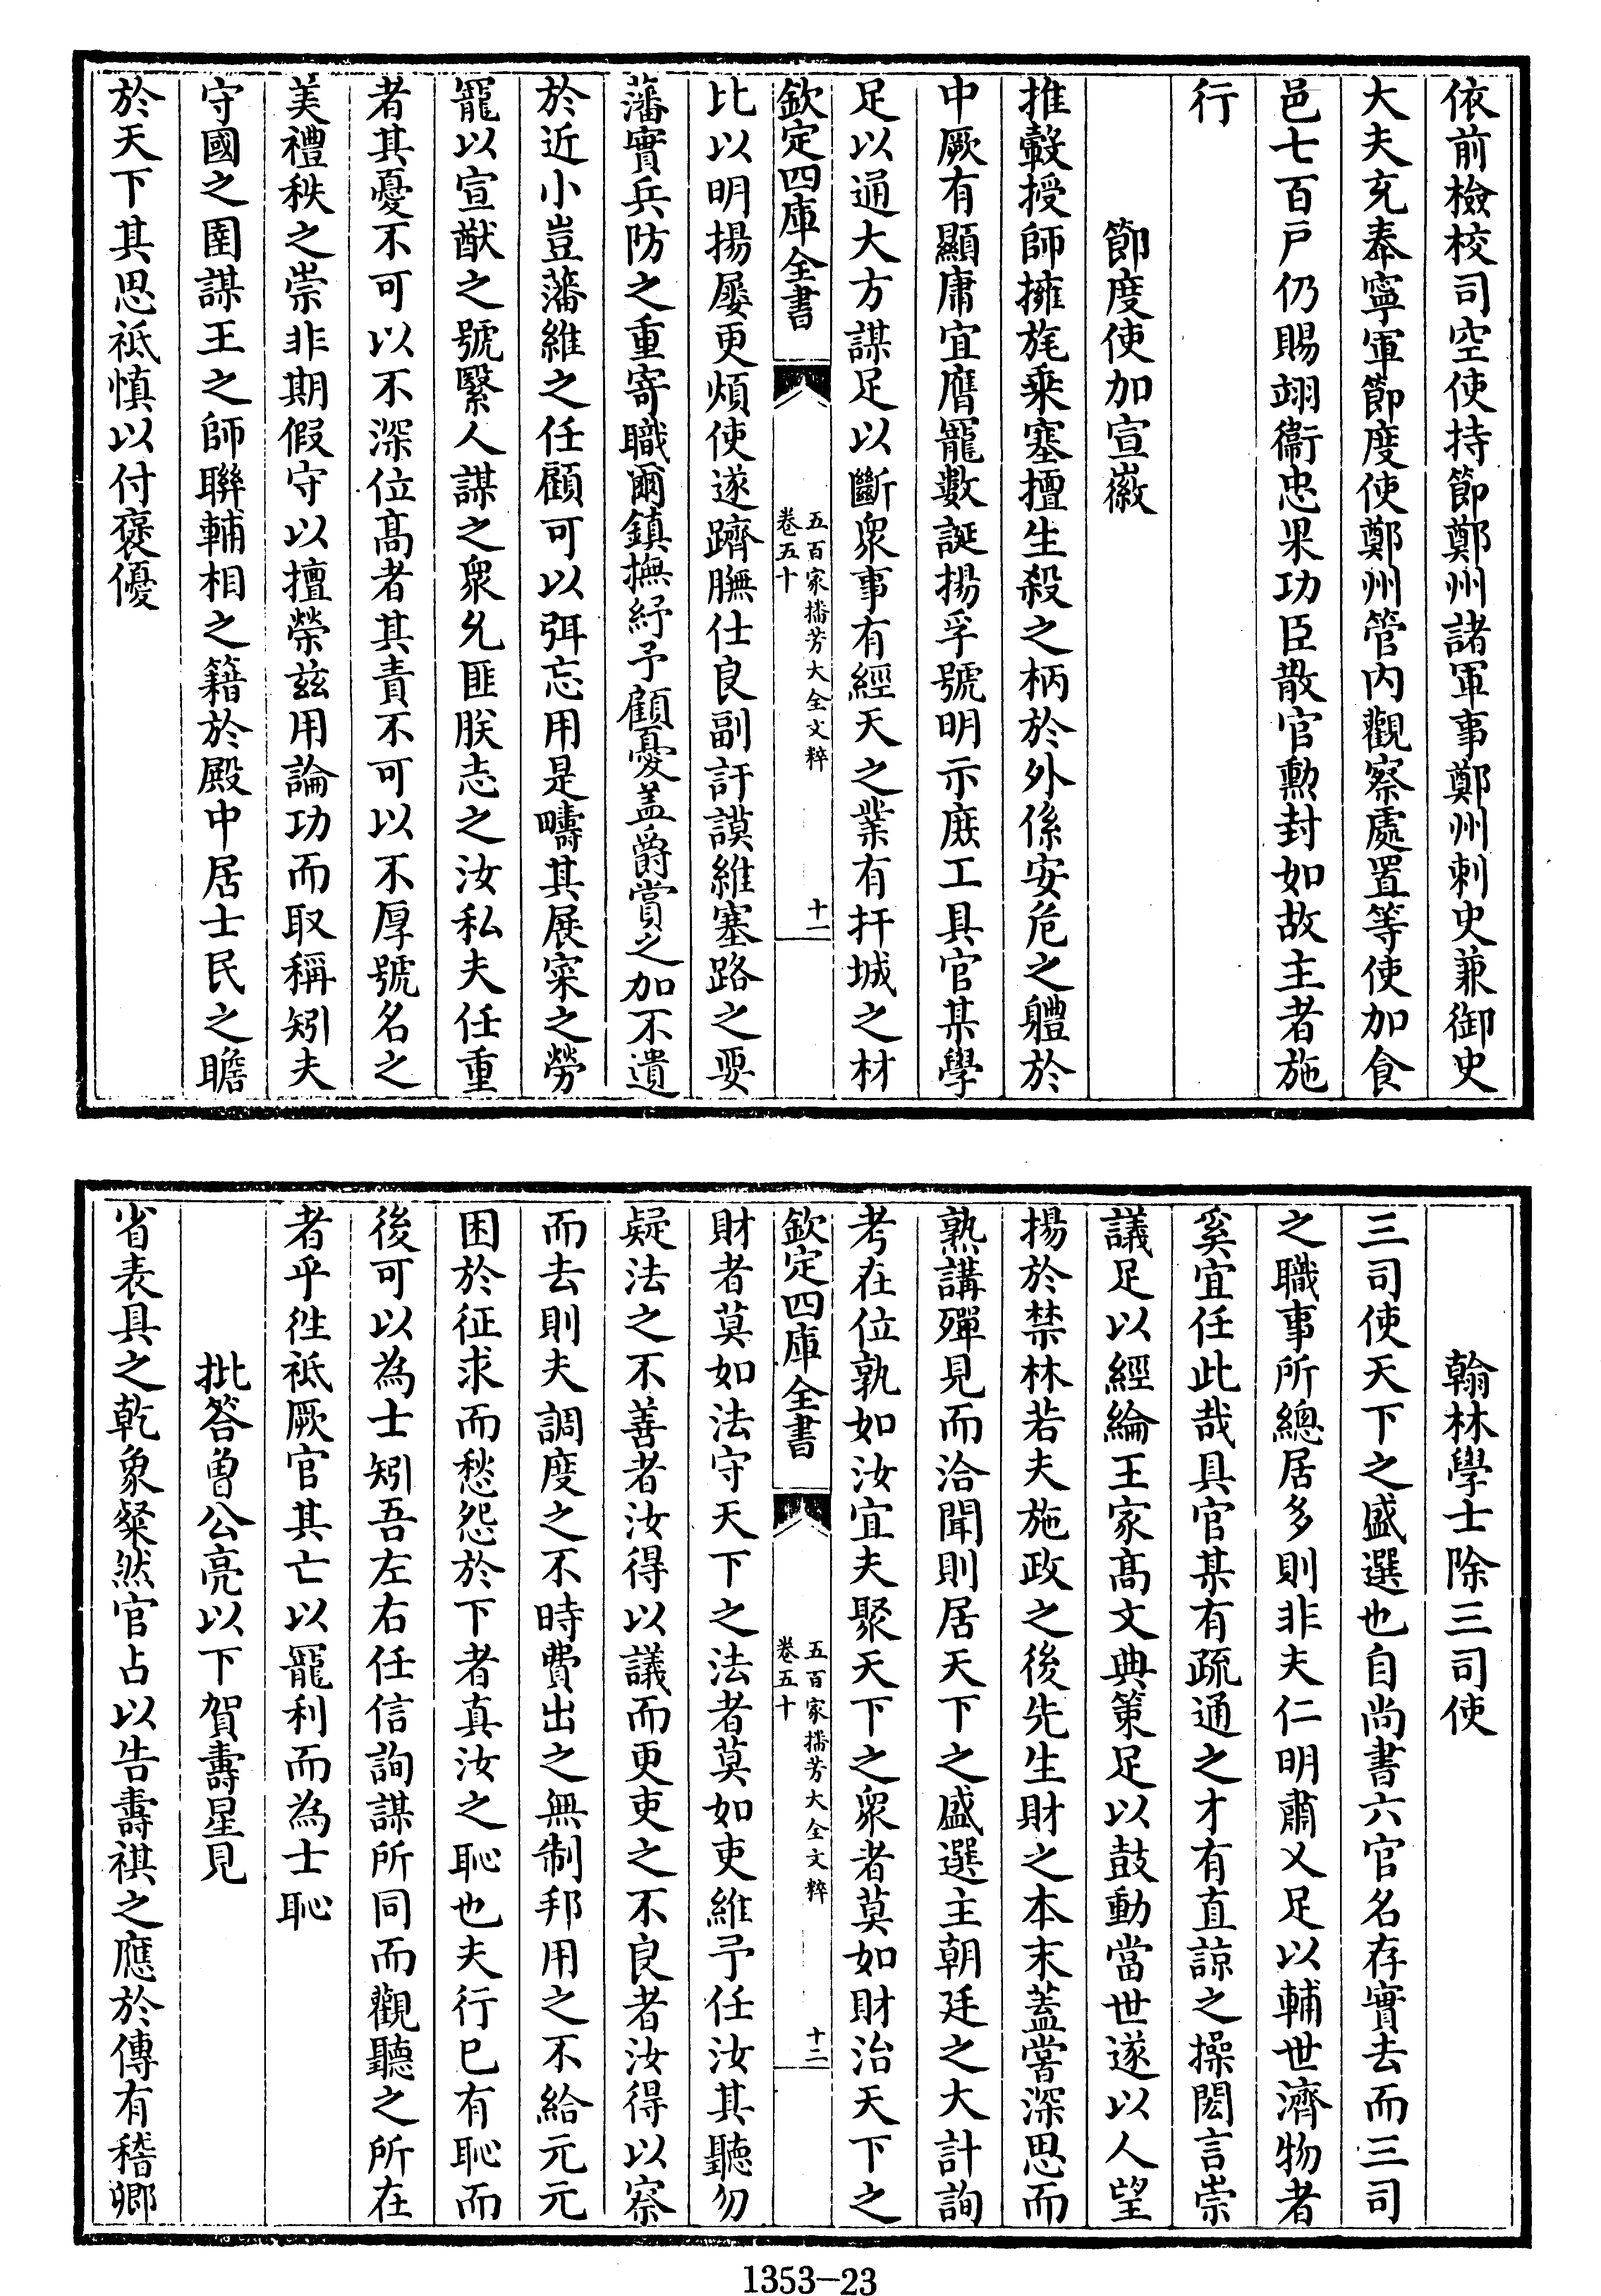 依前檢校司空使持節鄭州諸軍事鄭州刺史兼御史
大夫充奉寧軍節度使鄭州管内觀察處置等使加食
邑七百戸仍賜翊衞忠果功臣散官勲封如故主者施
行
節度使加宣徽
推轂授師擁旄乘塞擅生殺之柄於外係安危之體於
中厥有顯庸宜膺寵數誕揚孚號明示庶工具官某學
足以通大方謀足以斷衆事有經天之業有扞城之材
欽定四庫全書
五百家播芳大全文粹
卷五十
十一
比以明揚屢更煩使遂躋膴仕良副訏謨維塞路之要
藩實兵防之重寄職爾鎮撫紓予顧憂盖爵賞之加不遺
於近小豈藩維之任顧可以弭忘用是疇其展寀之勞
寵以宣猷之號繄人謀之衆允匪朕志之汝私夫任重
者其憂不可以不深位髙者其責不可以不厚號名之
美禮秩之崇非期假守以擅榮兹用論功而取稱矧夫
守國之圉謀王之師聯輔相之籍於殿中居士民之瞻
於天下其思祗慎以付褒優
翰林學士除三司使
三司使天下之盛選也自尚書六官名存實去而三司
之職事所總居多則非夫仁明肅乂足以輔世濟物者
奚宜任此哉具官某有疏通之才有直諒之操閎言崇
議足以經綸王家髙文典策足以鼓動當世遂以人望
揚於禁林若夫施政之後先生財之本末蓋嘗深思而
熟講殫見而洽聞則居天下之盛選主朝廷之大計詢
考在位孰如汝宜夫聚天下之衆者莫如財治天下之
欽定四庫全書
五百家播芳大全文粹
卷五十
十二
財者莫如法守天下之法者莫如吏維予任汝其聽勿
疑法之不善者汝得以議而更吏之不良者汝得以察
而去則夫調度之不時費出之無制邦用之不給元元
困於征求而愁怨於下者真汝之恥也夫行已有恥而
後可以為士矧吾左右任信詢謀所同而觀聽之所在
者乎徃祗厥官其亡以寵利而為士恥
批答曽公亮以下賀壽星見
省表具之乾象粲然官占以告壽祺之應於傳有稽卿
1353—23